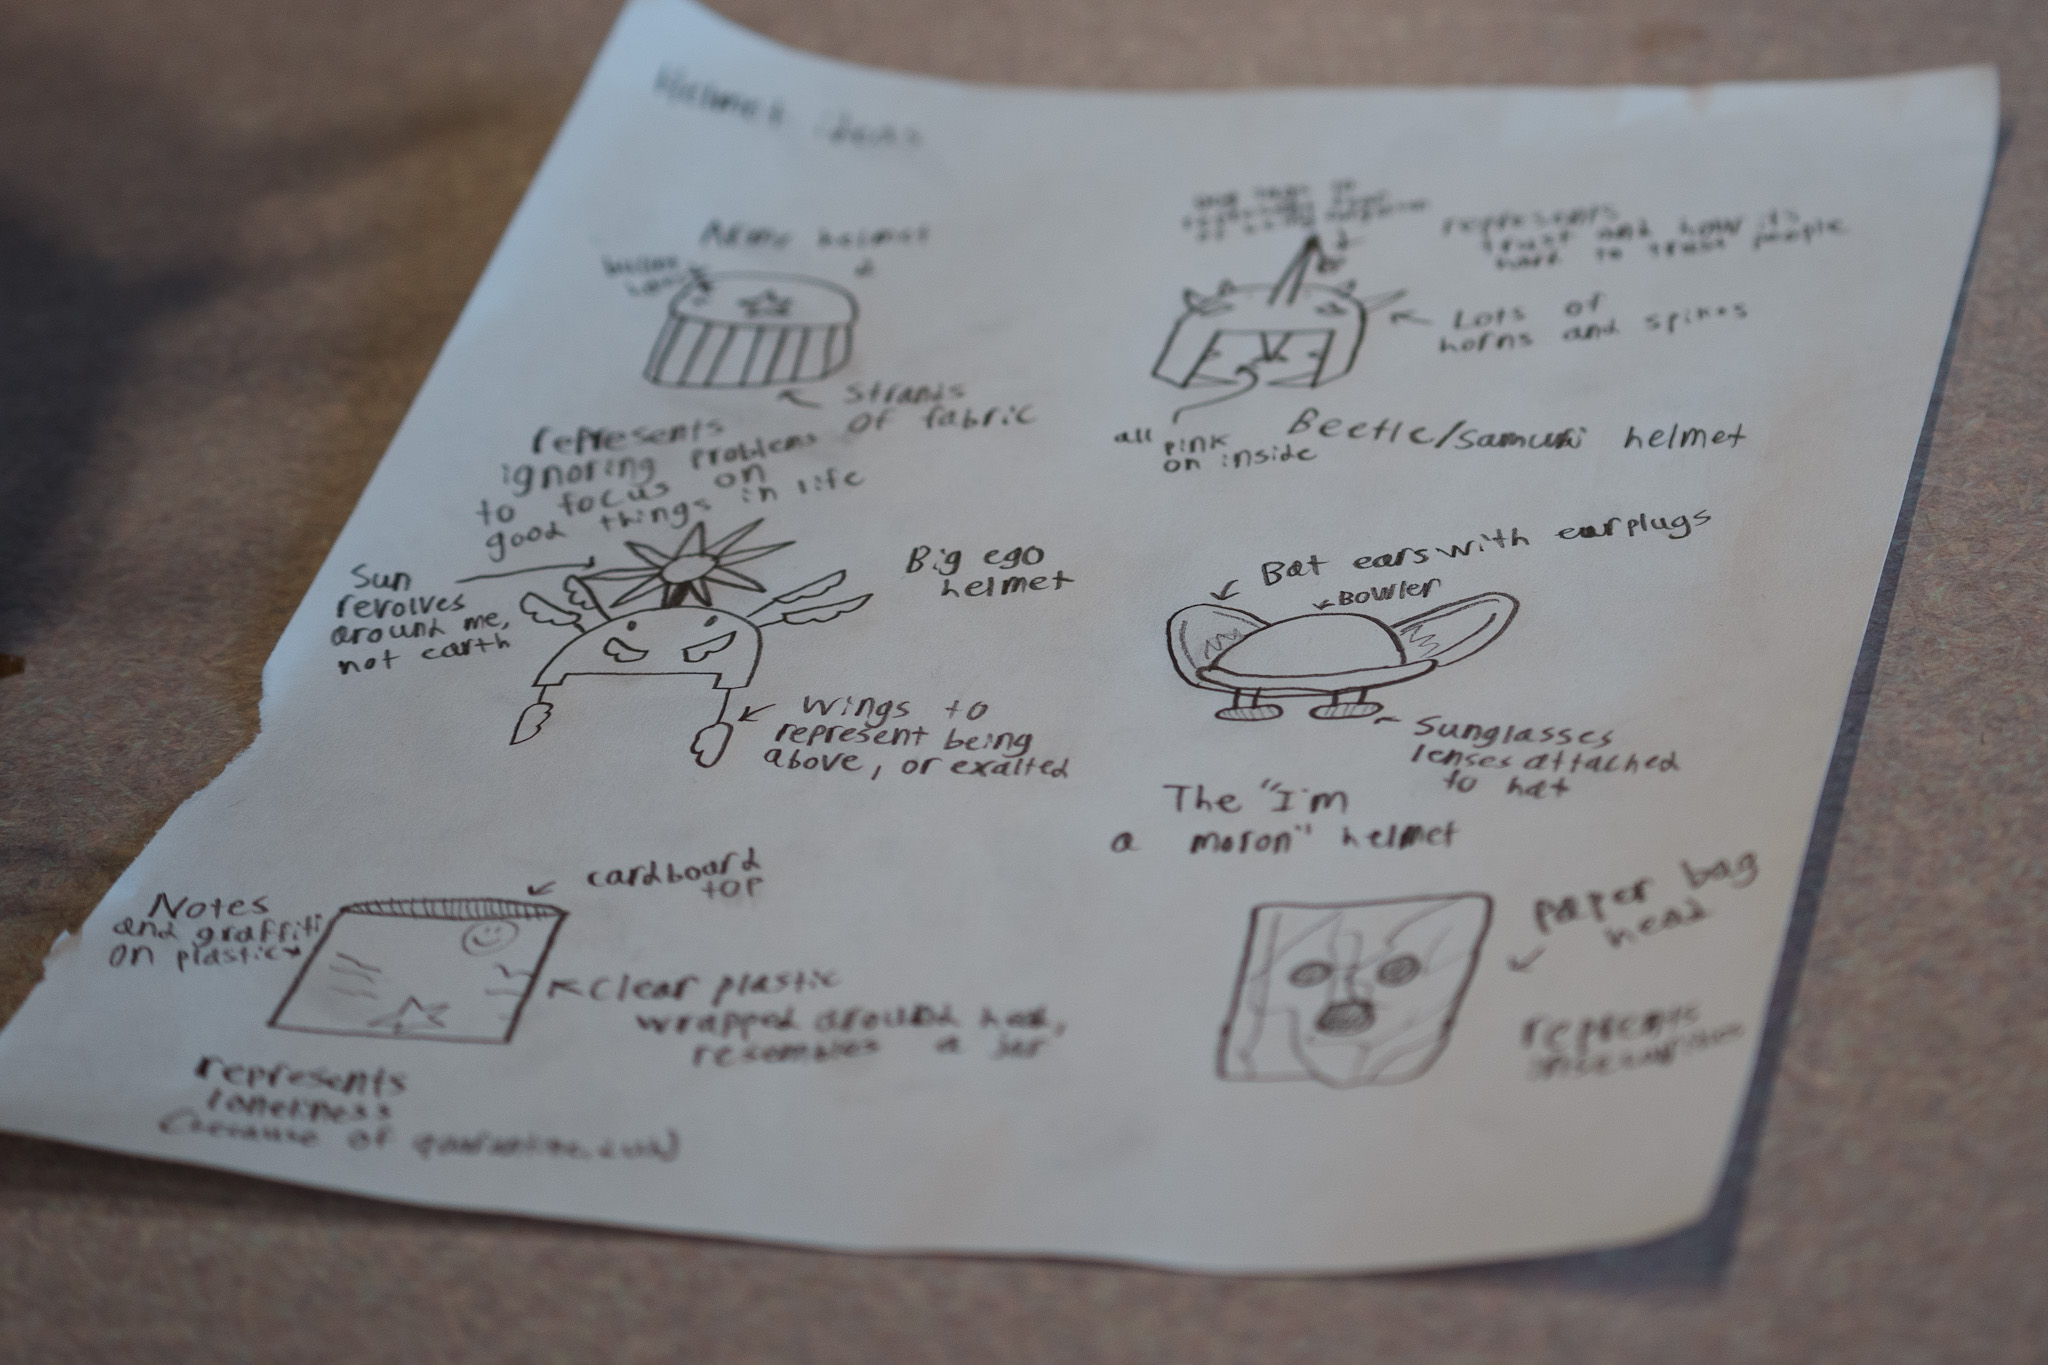 Helmet ideas
helmet
Strands
of fabric
represents
ignoring problems
to focus on
good things in life
represents
trust and how its
hard to trust people
Lots of
horns and spikes
all pink
on inside
Beetle/samuri helmet
Sun
revolves
around me,
not earth
Big ego
helmet
Wings to
represent being
above, or exalted
Bat ears with earplugs
Bowler
Sunglasses
lenses attached
to hat
The "I'm
a moron" helmet
cardboard
top
Notes
and graffiti
on plastic
Clear plastic
wrapped around head,
resembles a jar
represents
loneliness
(because of quarantine
paper bag
head